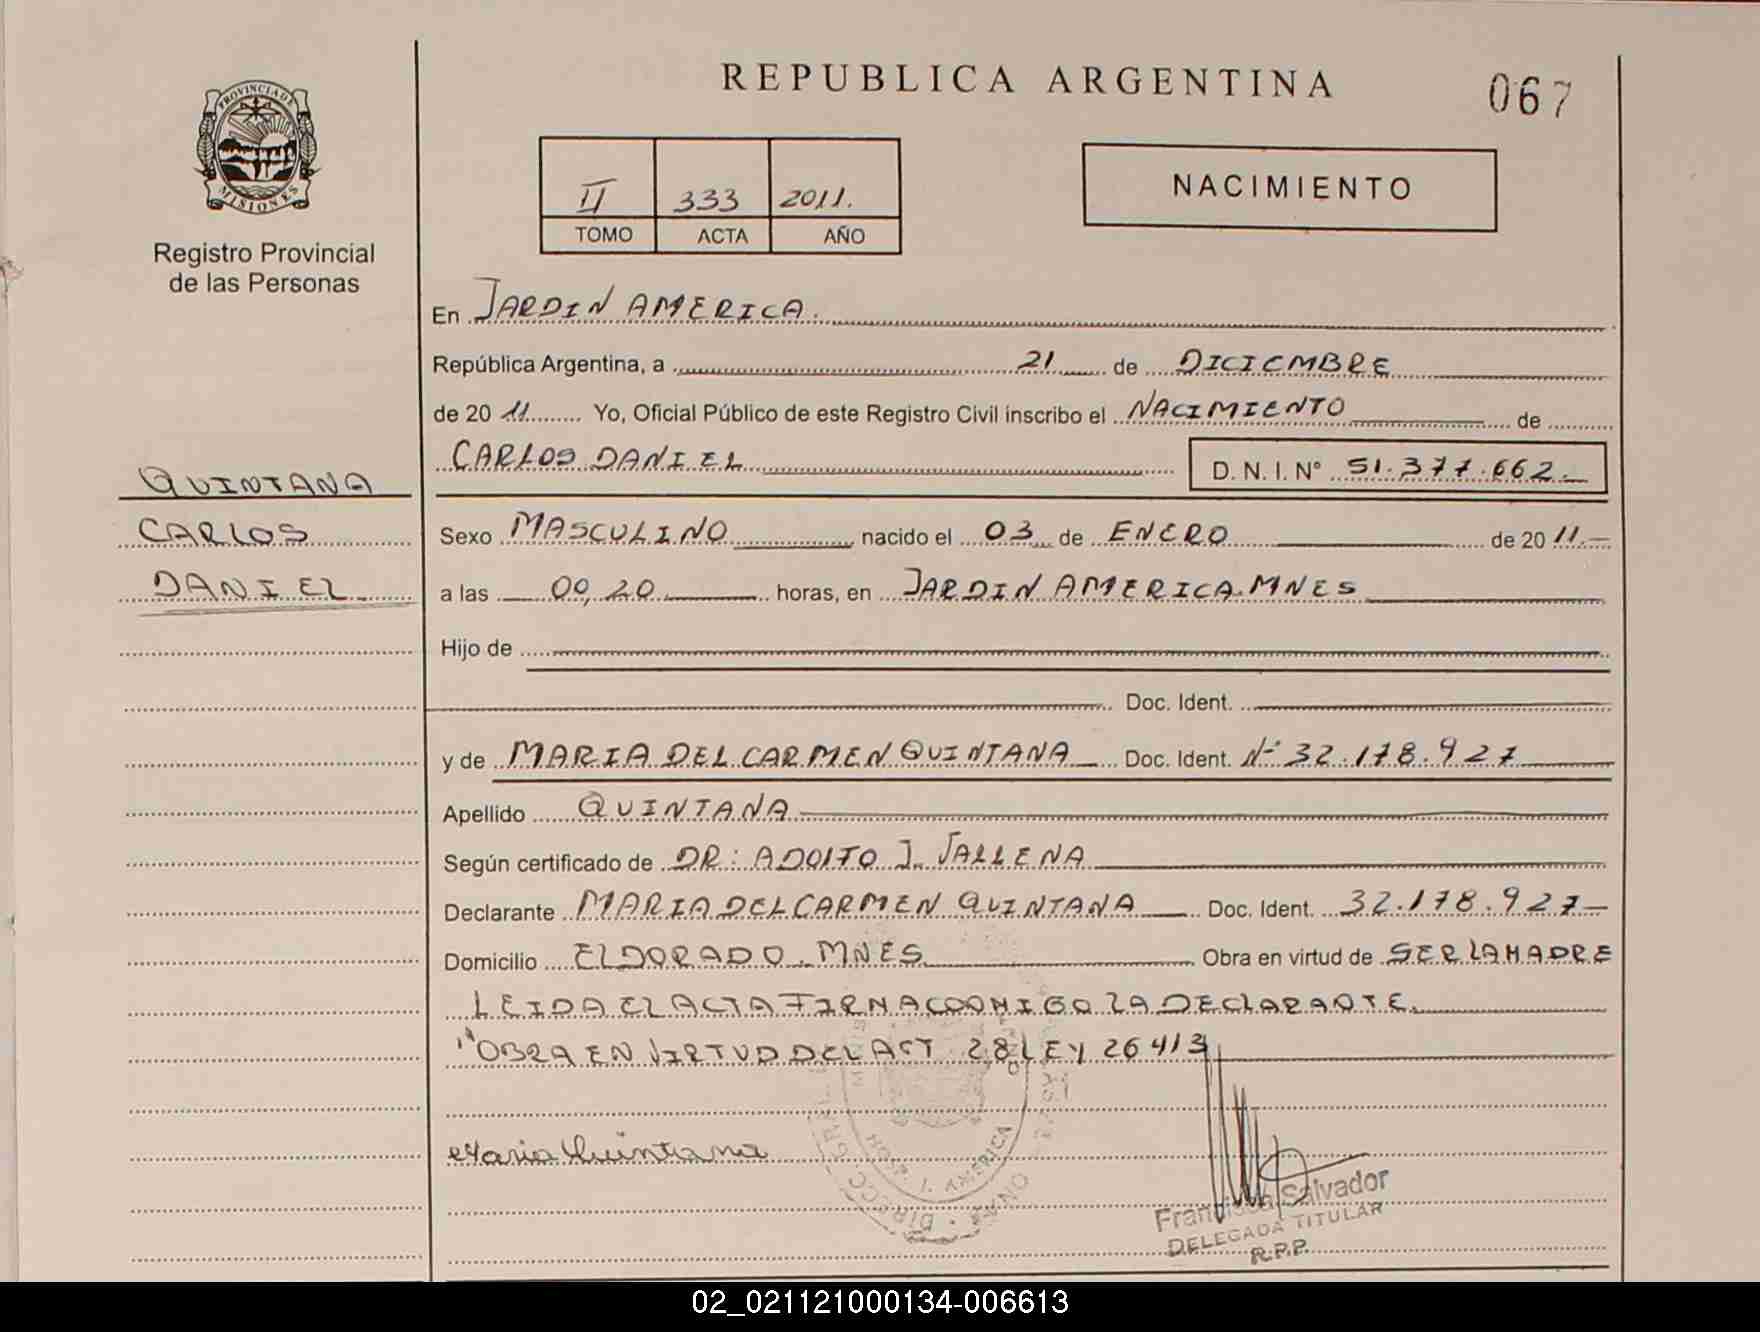 REPUBLICA ARGENTINA
067
PROVINCIA DE
MISIONES
Registro Provincial
de las Personas
II 333 2011.
TOMO ACTA AÑO
NACIMIENTO
En JARDIN AMERICA.
República Argentina, a 21 de DICIEMBRE
de 20 11 Yo, Oficial Público de este Registro Civil inscribo el NACIMIENTO de
CARLOS DANIEL D. N. I. N° 51.377.662.
QUINTANA
CARLOS
DANIEL
Sexo MASCULINO nacido el 03 de ENERO de 20 11.
a las 00,20 horas, en JARDIN AMERICA.MNES
Hijo de
Doc. Ident.
y de MARIA DEL CARMEN QUINTANA Doc. Ident. Nº 32.178.927
Apellido QUINTANA
Según certificado de DR: ADOLFO J. VALLENA
Declarante MARIA DEL CARMEN QUINTANA Doc. Ident. 32.178.927
Domicilio ELDORADO. MNES Obra en virtud de SER LA MADRE
LEIDA EL ACTA FIRMA CONMIGO LA DECLARANTE.
"OBRA EN VIRTUD DEL ACT 28 LEY 26413
Maria Quintana
J. AMERICA
Francisca Salvador
DELEGADA TITULAR
R.P.P.
02_021121000134-006613